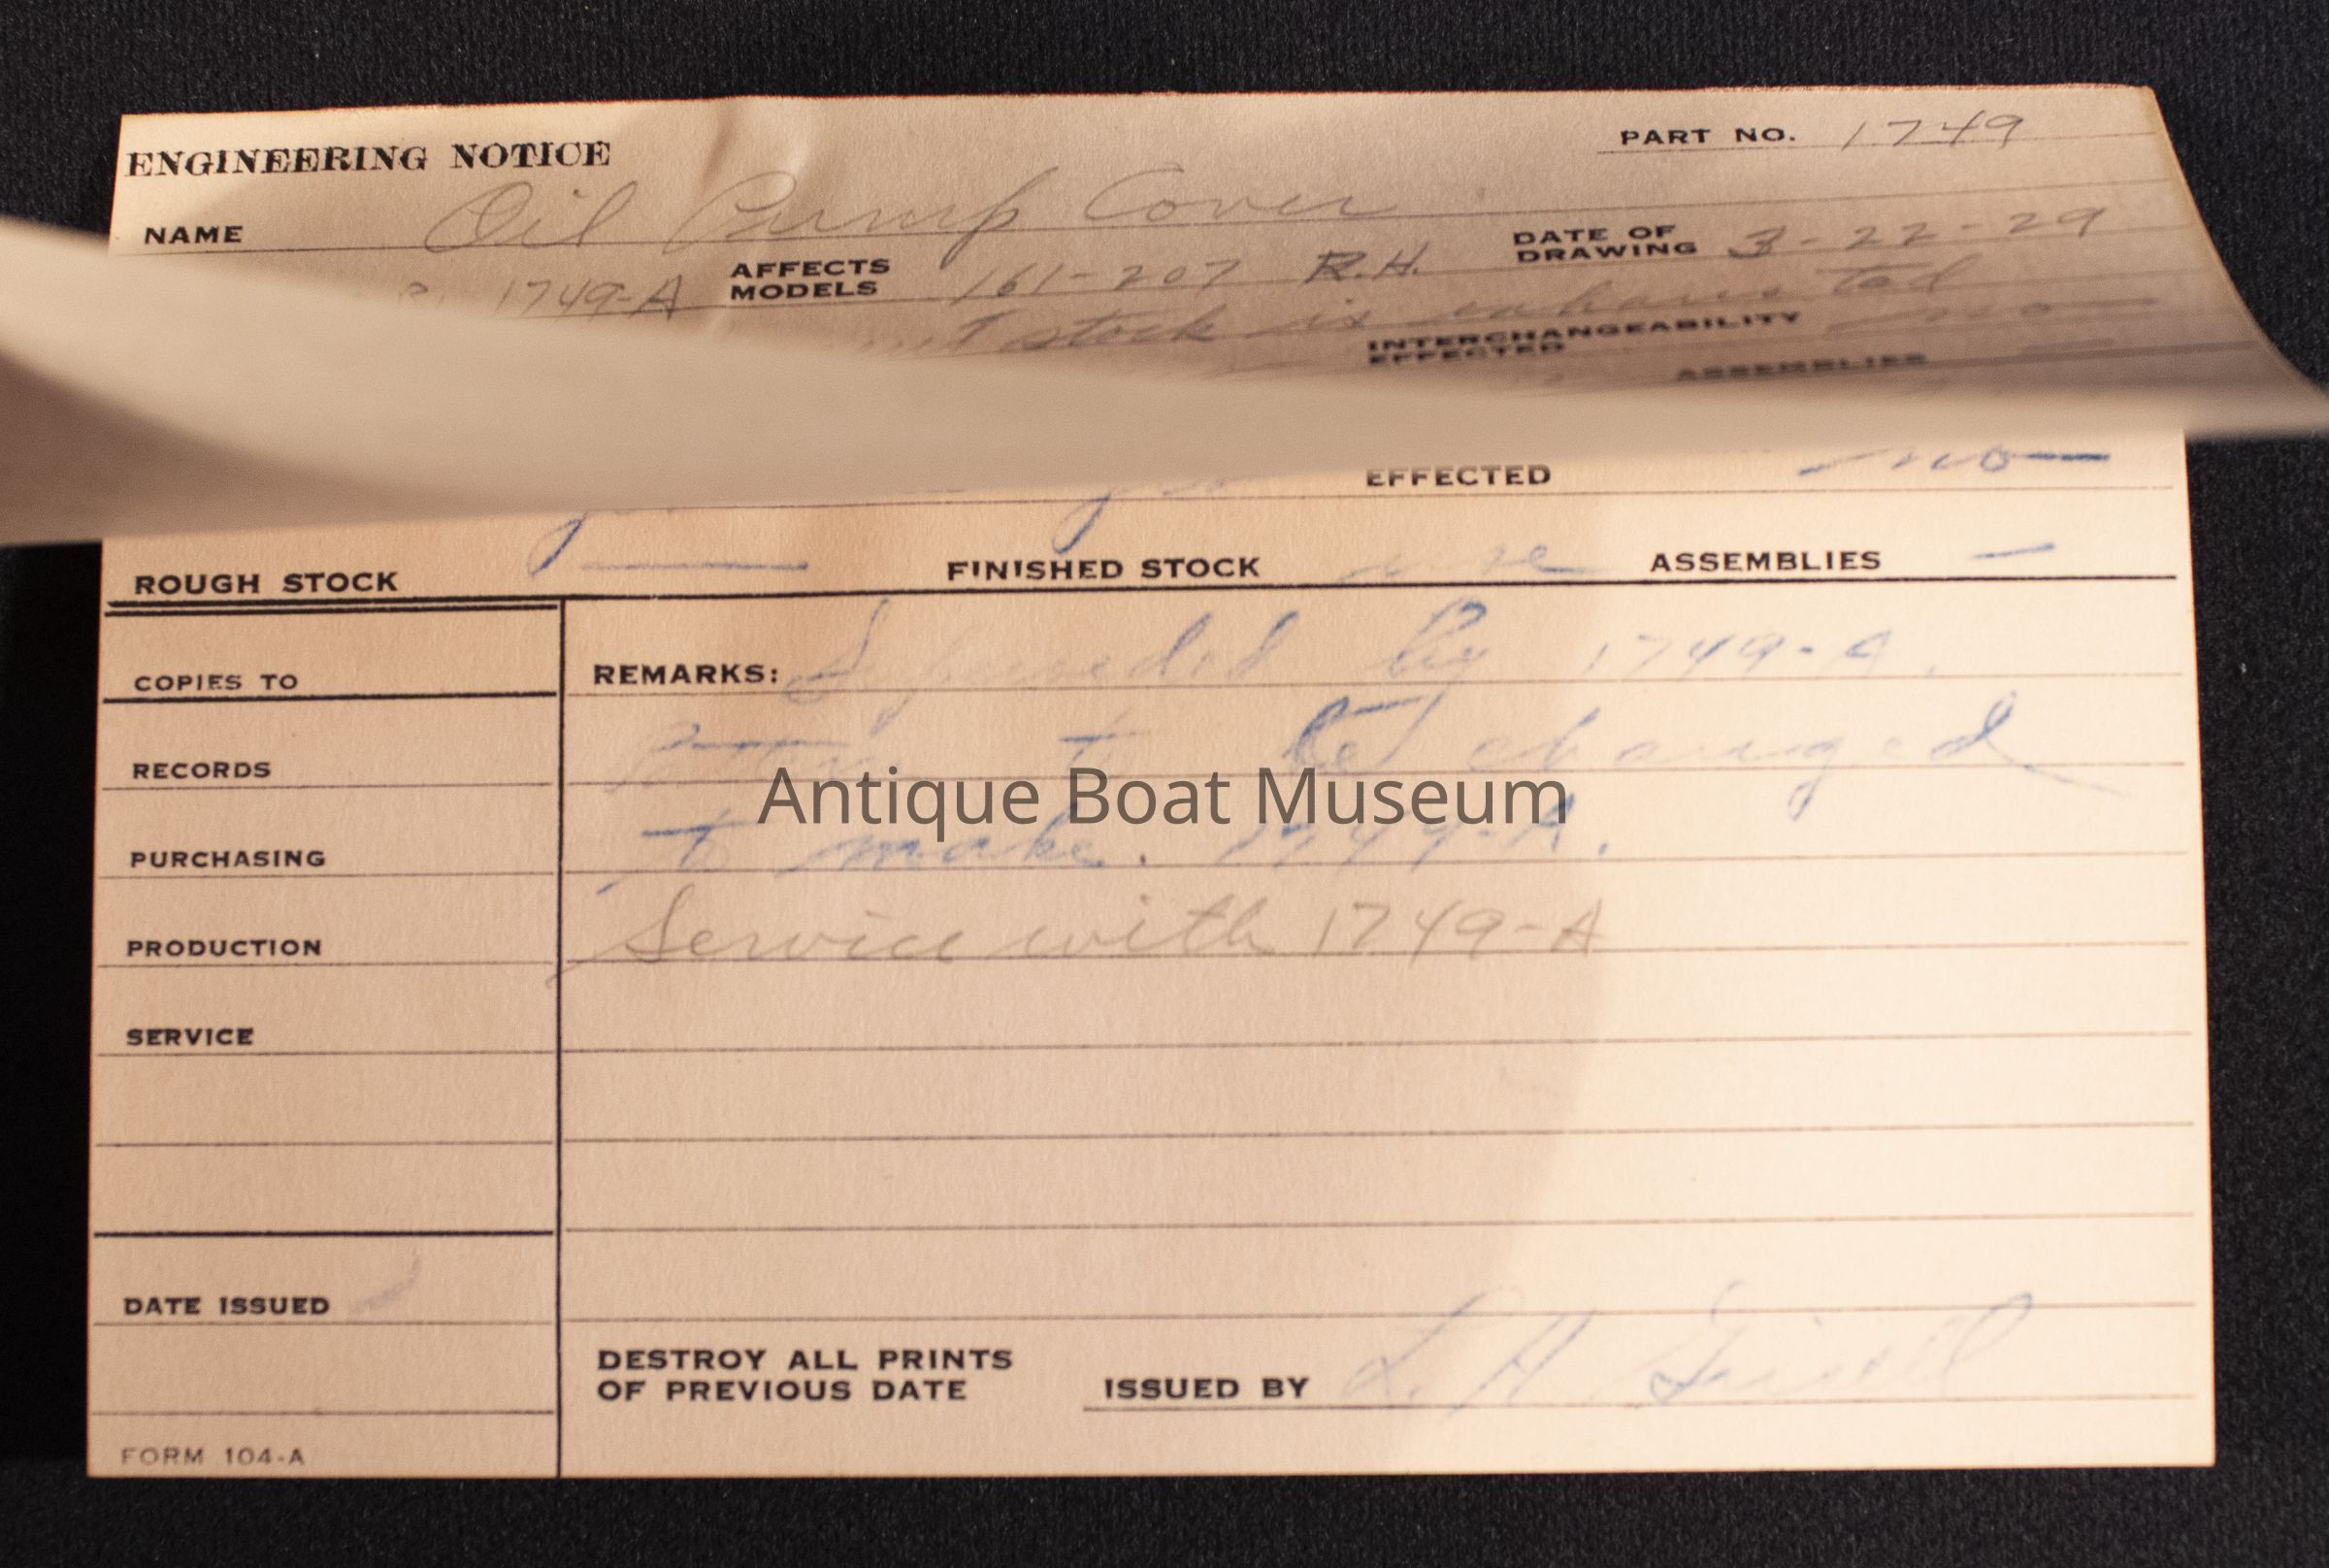 ENGINEERING NOTICE PART NO. 1749
NAME Oil Pump Cover
DATE OF DRAWING 3-22-29
1749-A AFFECTS MODELS 161-207 R.H.
stock is exhausted
INTERCHANGEABILITY EFFECTED no
ASSEMBLIES
EFFECTED no
ROUGH STOCK — FINISHED STOCK use ASSEMBLIES —
COPIES TO
REMARKS: by 1749-A.
RECORDS
to be changed
Antique Boat Museum
PURCHASING
to make. 1749-A.
PRODUCTION
Service with 1749-A
SERVICE
DATE ISSUED
DESTROY ALL PRINTS
OF PREVIOUS DATE
ISSUED BY L. H.
FORM 104-A